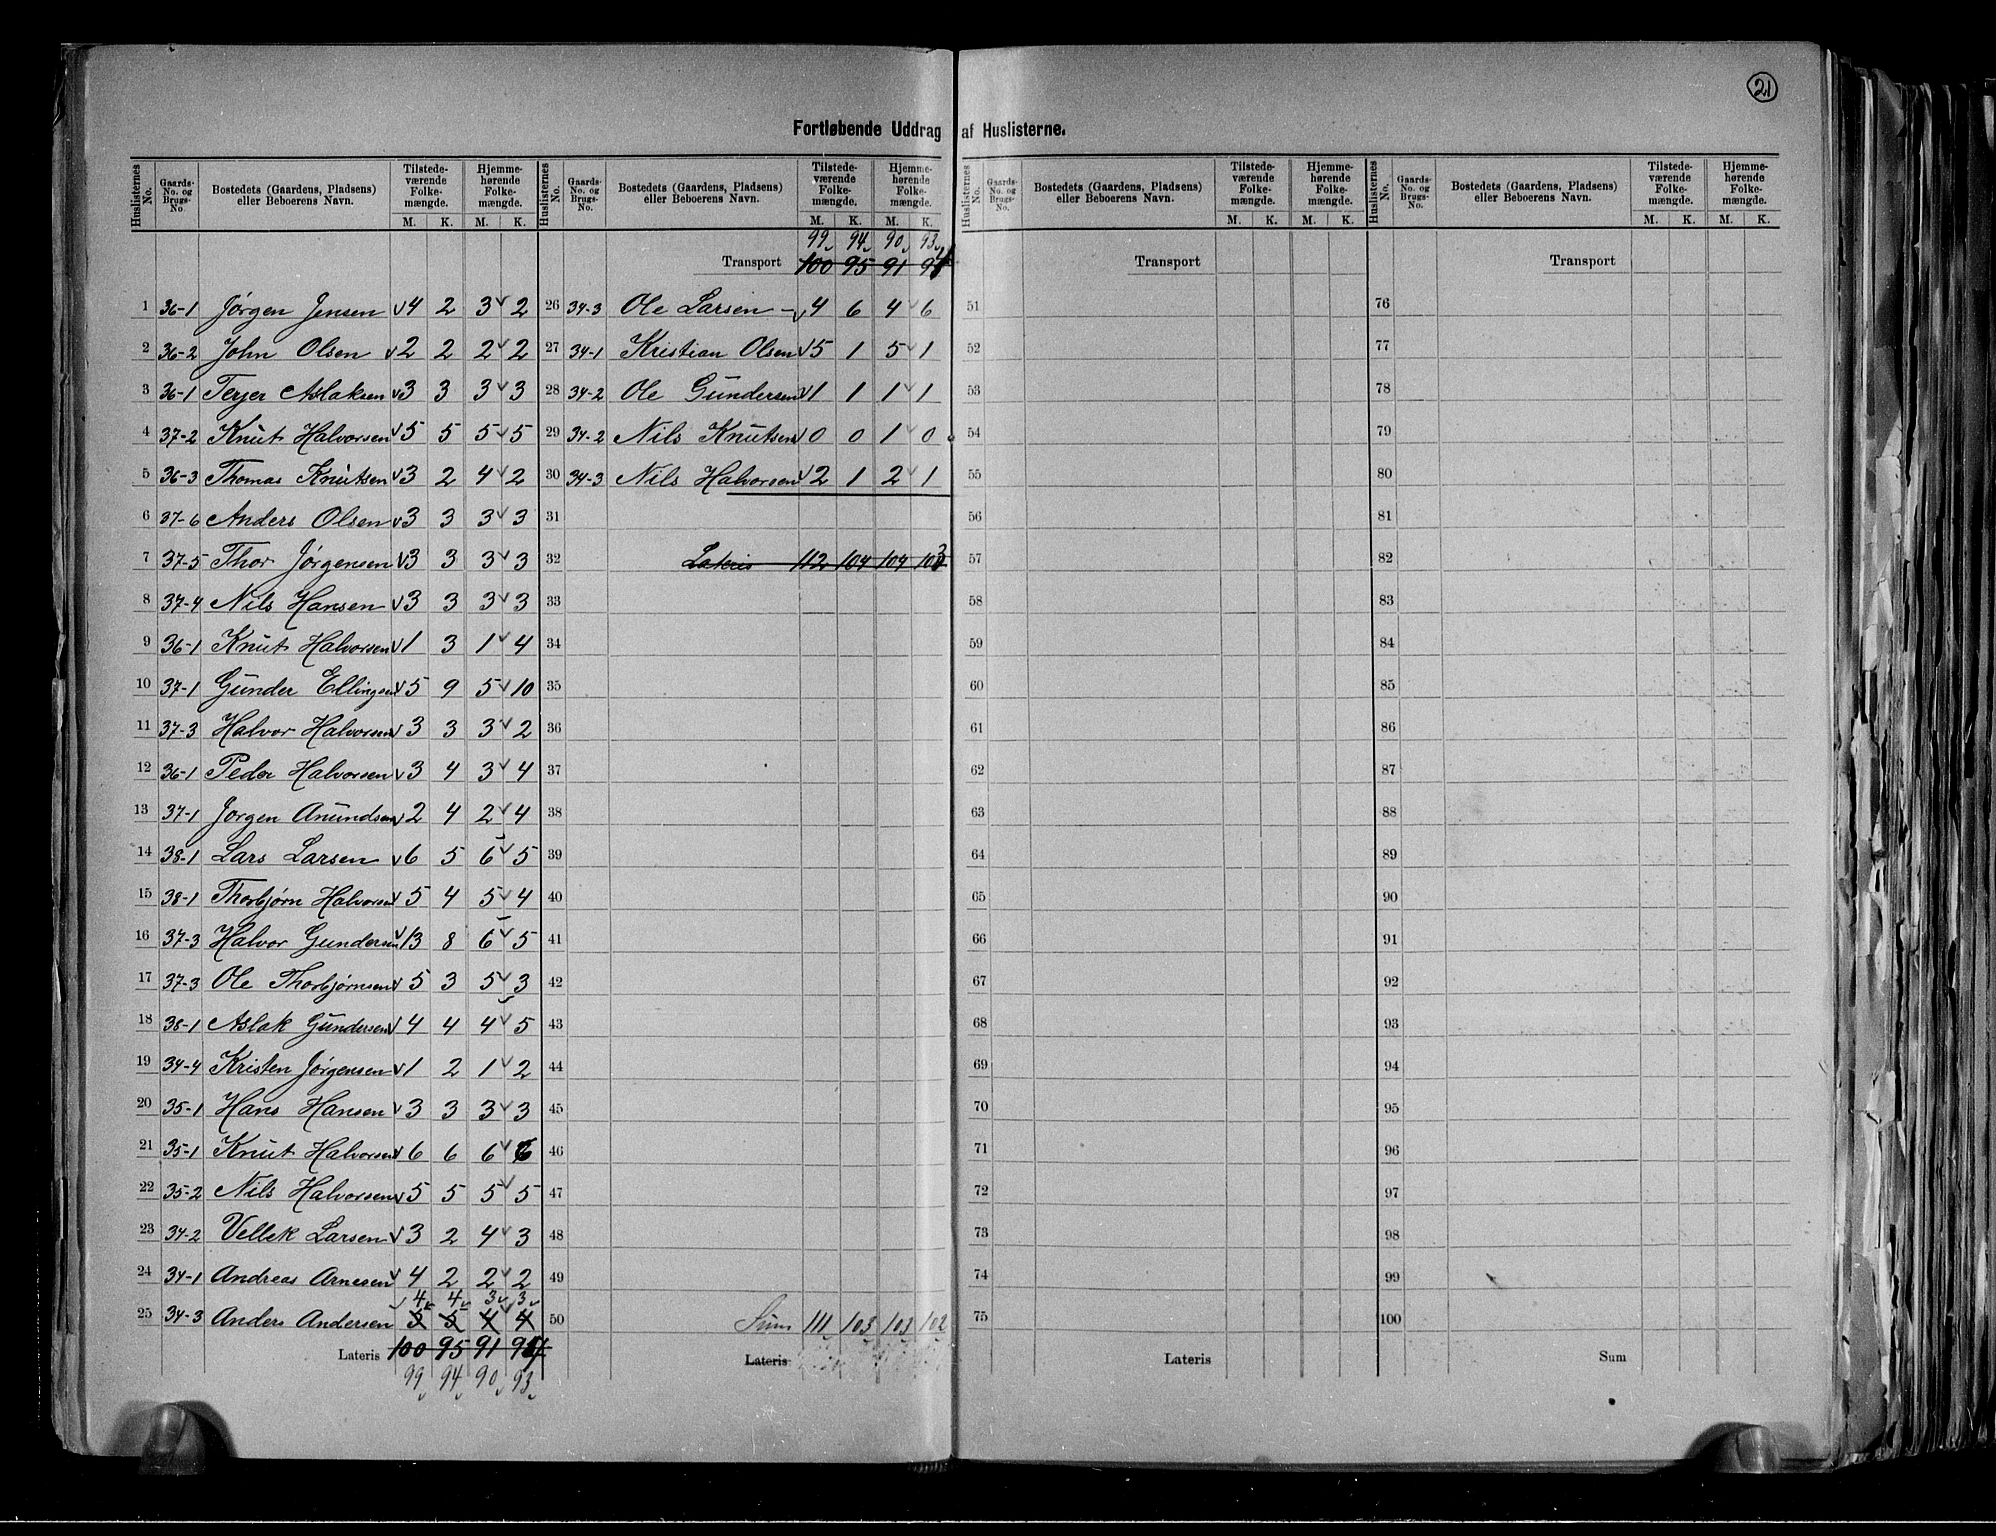 21
Fortløbende Uddrag af Huslisterne.
Huslisternes No. Gaards-No. og Brugs-No. Bostedets (Gaardens, Pladsens) eller Beboerens Navn. Tilstedeværende Folkemængde. M. K. Hjemmehørende Folkemængde. M. K.
1 36-1 Jørgen Jensen 4 2 3 2
2 36-2 John Olsen 2 2 2 2
3 36-1 Terjer Aslaksen 3 3 3 3
4 37-2 Knut Halvorsen 5 5 5 5
5 36-3 Thomas Knutsen 3 2 4 2
6 37-6 Anders Olsen 3 3 3 3
7 37-5 Thor Jørgensen 3 3 3 3
8 37-4 Nils Hansen 3 3 3 3
9 36-1 Knut Halvorsen 1 3 1 4
10 37-1 Gunder Ellingsen 5 9 5 10
11 37-3 Halvor Halvorsen 3 3 3 2
12 36-1 Peder Halvorsen 3 4 3 4
13 37-1 Jørgen Anundsen 2 4 2 4
14 38-1 Lars Larsen 6 5 6 5
15 38-1 Thorbjørn Halvorsen 5 4 5 4
16 37-3 Halvor Gundersen 13 8 6 5
17 37-3 Ole Thorbjørnsen 5 3 5 3
18 38-1 Aslak Gundersen 4 4 4 5
19 34-4 Kristen Jørgensen 1 2 1 2
20 35-1 Hans Hansen 3 3 3 3
21 35-1 Knut Halvorsen 6 6 6 6
22 35-2 Nils Halvorsen 5 5 5 5
23 34-2 Vellek Larsen 3 2 4 3
24 34-1 Andreas Arnesen 4 2 2 2
4 4 3 3
25 34-3 Anders Andersen 5 5 4 4
Lateris 100 95 91 94
99 94 90 93
Huslisternes No. Gaards-No. og Brugs-No. Bostedets (Gaardens, Pladsens) eller Beboerens Navn. Tilstedeværende Folkemængde. M. K. Hjemmehørende Folkemængde. M. K.
99 94 90 93
Transport 100 95 91 94
26 34-3 Ole Larsen 4 6 4 6
27 34-1 Kristian Olsen 5 1 5 1
28 34-2 Ole Gundersen 1 1 1 1
29 34-2 Nils Knutsen 0 0 1 0
30 34-3 Nils Halvorsen 2 1 2 1
31
32 Lateris 112 104 104 103
33
34
35
36
37
38
39
40
41
42
43
44
45
46
47
48
49
50 Sum 111 103 103 102
Lateris
Huslisternes No. Gaards-No. og Brugs-No. Bostedets (Gaardens, Pladsens) eller Beboerens Navn. Tilstedeværende Folkemængde. M. K. Hjemmehørende Folkemængde. M. K.
Transport
51
52
53
54
55
56
57
58
59
60
61
62
63
64
65
66
67
68
69
70
71
72
73
74
75
Lateris
Huslisternes No. Gaards-No. og Brugs-No. Bostedets (Gaardens, Pladsens) eller Beboerens Navn. Tilstedeværende Folkemængde. M. K. Hjemmehørende Folkemængde. M. K.
Transport
76
77
78
79
80
81
82
83
84
85
86
87
88
89
90
91
92
93
94
95
96
97
98
99
100
Sum